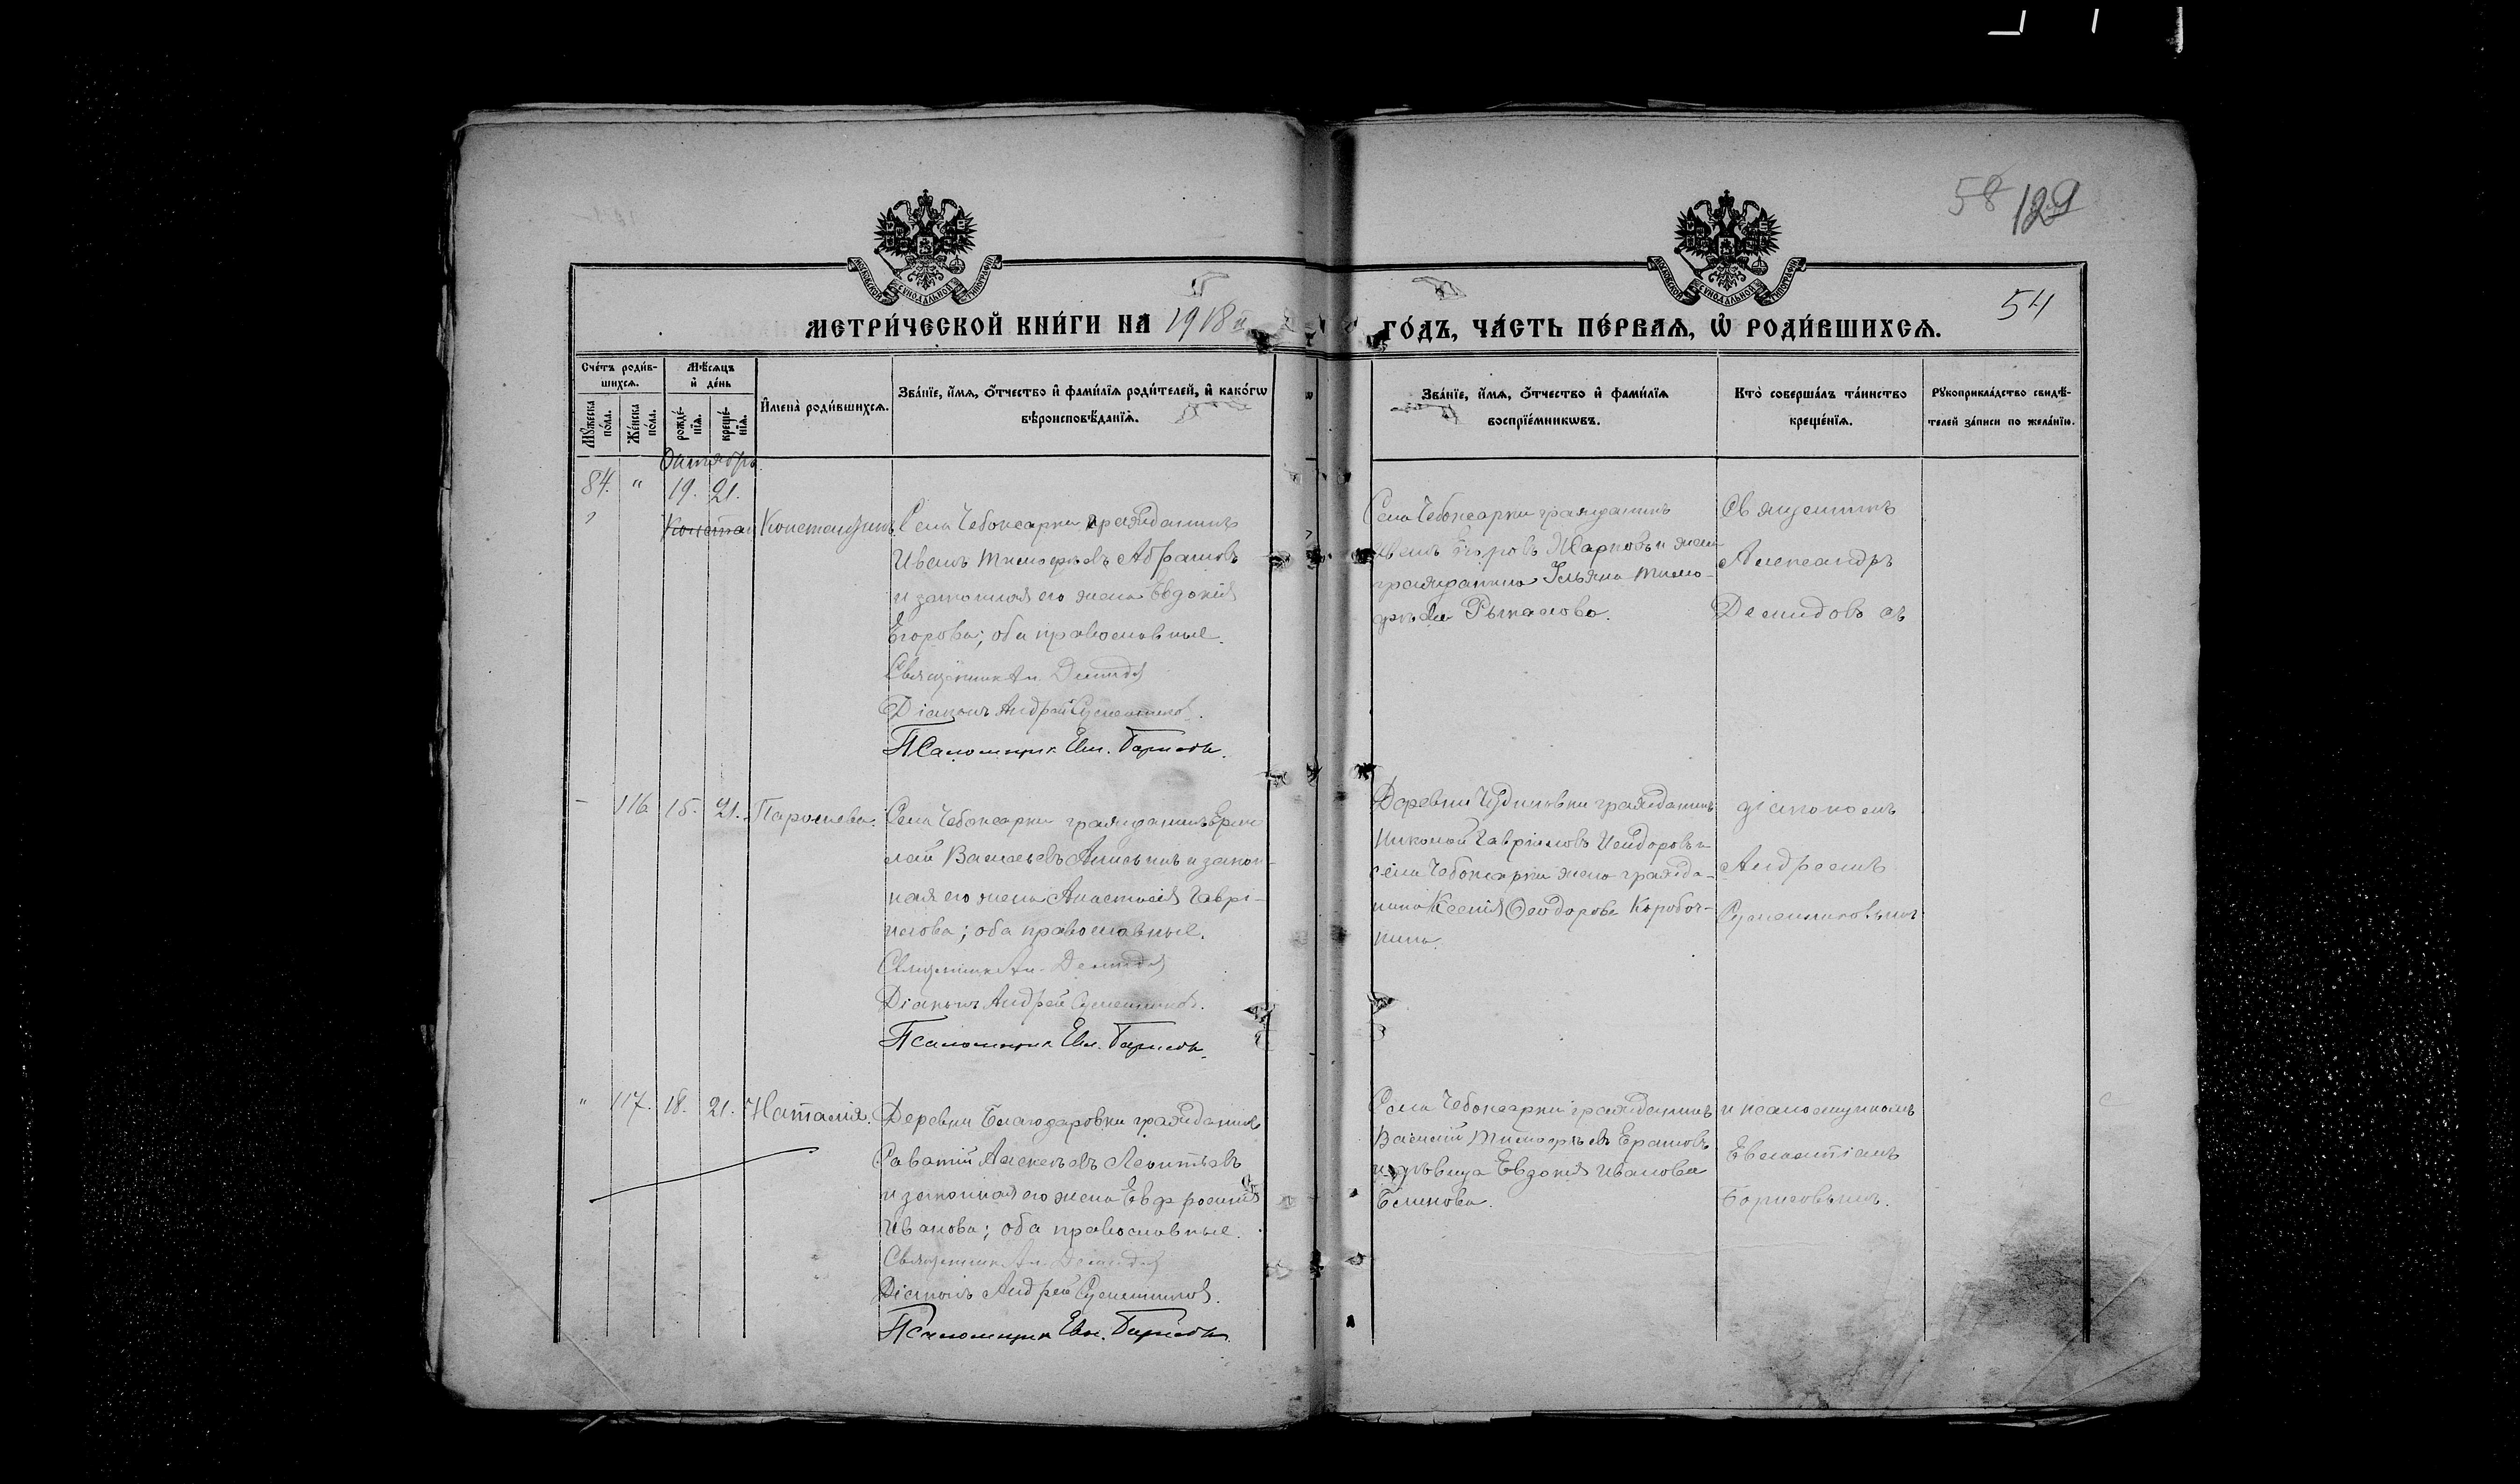 58
129
54
МОСКОВСКОЙ СѴНОДАЛЬНОЙ ТИПОГРАФІИ
МОСКОВСКОЙ СѴНОДАЛЬНОЙ ТИПОГРАФІИ
МЕТРИ́ЧЕСКОЙ КНИ́ГИ НА 1918й ГО́ДЪ, ЧА́СТЬ ПЕ́РВАѦ, Ѡ РОДИ́ВШИХСѦ.
Сче́тъ роди́в-
шихсѧ.
Мꙋ́жеска по́ла.
Же́нска по́ла.
Мѣ́сѧцъ
и҆ де́нь
рожде́-
нїѧ.
креще́-
нїѧ.
И҆мена̀ роди́вшихсѧ.
Зва́нїе, и҆́мѧ, о҆́тчество и҆ фами́лїѧ роди́телей, и҆ како́гѡ
вѣроисповѣ́данїѧ.
Зва́нїе, и҆́мѧ, о҆́тчество и҆ фами́лїѧ
воспрїе́мникѡвъ.
Кто̀ соверша́лъ та́инство
креще́нїѧ.
Рꙋкоприкла́дство свидѣ́-
телей за́писи по жела́нїю.
Октябрь.
84. " 19. 21.
Констан Константинъ.
Села Чебоксарки гражданинъ
Иванъ Тимофѣевъ Абрамовъ
и законная его жена Евдокія
Егорова; оба православные.
Священникъ Ал. Демидов
Діаконъ Андрей
Псаломщик Евл. Борисовъ.
Села Чебоксарки гражданинъ
Иванъ Егоровъ Жарковъ и жена
гражданина Ульяна Тимо-
фѣева Рыкалова.
Священникъ
Александръ
Демидовъ съ
- 116 15. 21. Параскева.
Села Чебоксарки гражданинъ Ерми
лай Васильевъ Анисинъ и закон-
ная его жена Анастасія Гаврі-
илова; оба православные.
Священникъ Ал. Демидов
Діаконъ Андрей
Псаломщик Евл. Борисовъ.
Деревни гражданинъ
Николай Гавріиловъ Исидоровъ и
села Чебоксарки жена гражда-
нина Ксенія Ѳеодорова Коробоч-
кина.
діакономъ
Андреемъ
" 117. 18. 21. Наталія.
Деревни Благодаровки гражданинъ
Саватій Алексѣевъ Леонтьевъ
и законная его жена Евфросинія
Иванова; оба православные.
Священникъ Ал. Демидов
Діаконъ Андрей
Псаломщик Евл. Борисовъ.
Села Чебоксарки гражданинъ
Василій Тимофѣевъ Ерамовъ
и дѣвица Евдокія Иванова
Блинова.
и псаломщикомъ
Евлампіемъ
Борисовымъ.